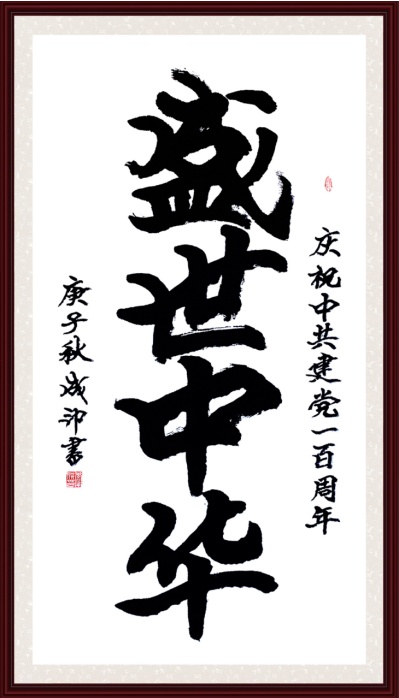 庆祝中共建党一百周年
盛世中华
庚子秋成印書